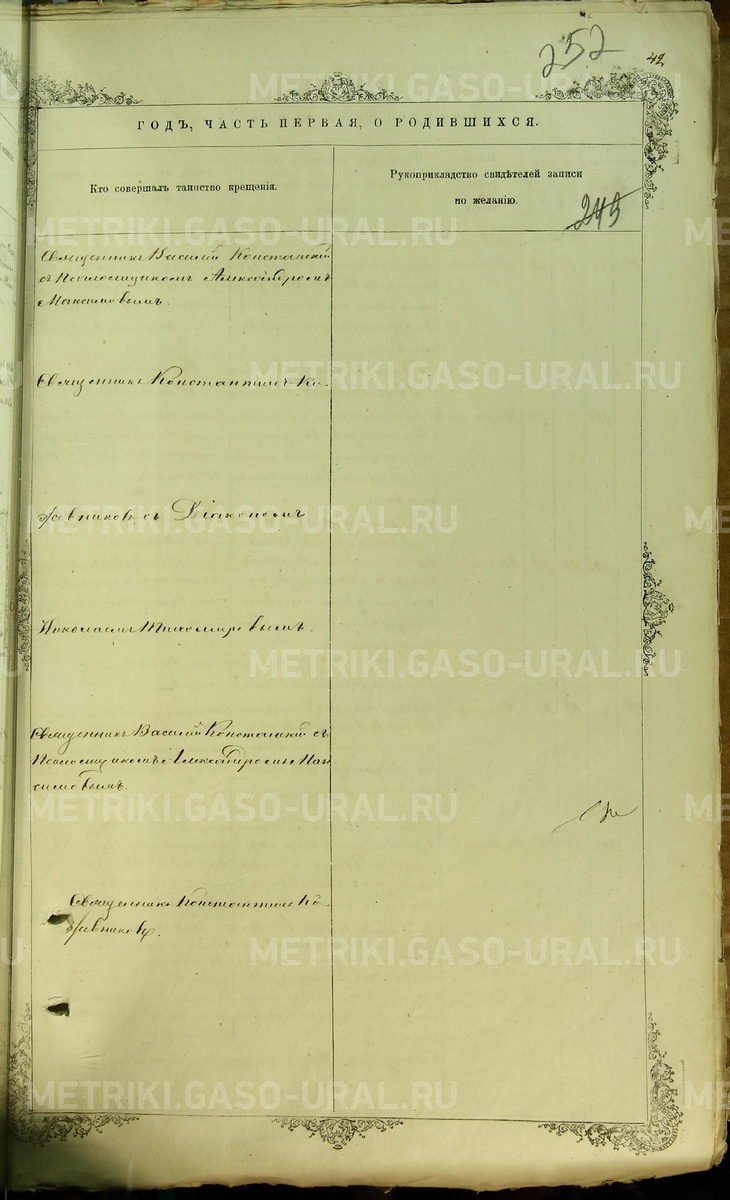 252
42
ГОДЪ, ЧАСТЬ ПЕРВАЯ, О РОДИВШИХСЯ.
Кто совершалъ таинство крещенія.
Рукоприкладство свидѣтелей записи
по желанію.
245
Священникъ Василій
съ Псаломщикомъ Александромъ
Максимовымъ.
Священникъ Константинъ Ко-
съ Діакономъ
Николаемъ Тихомировымъ.
Священникъ Василій съ
Псаломщикомъ Александромъ Мак
симовымъ.
Священникъ Константинъ Ко-
METRIKI.GASO-URAL.RU